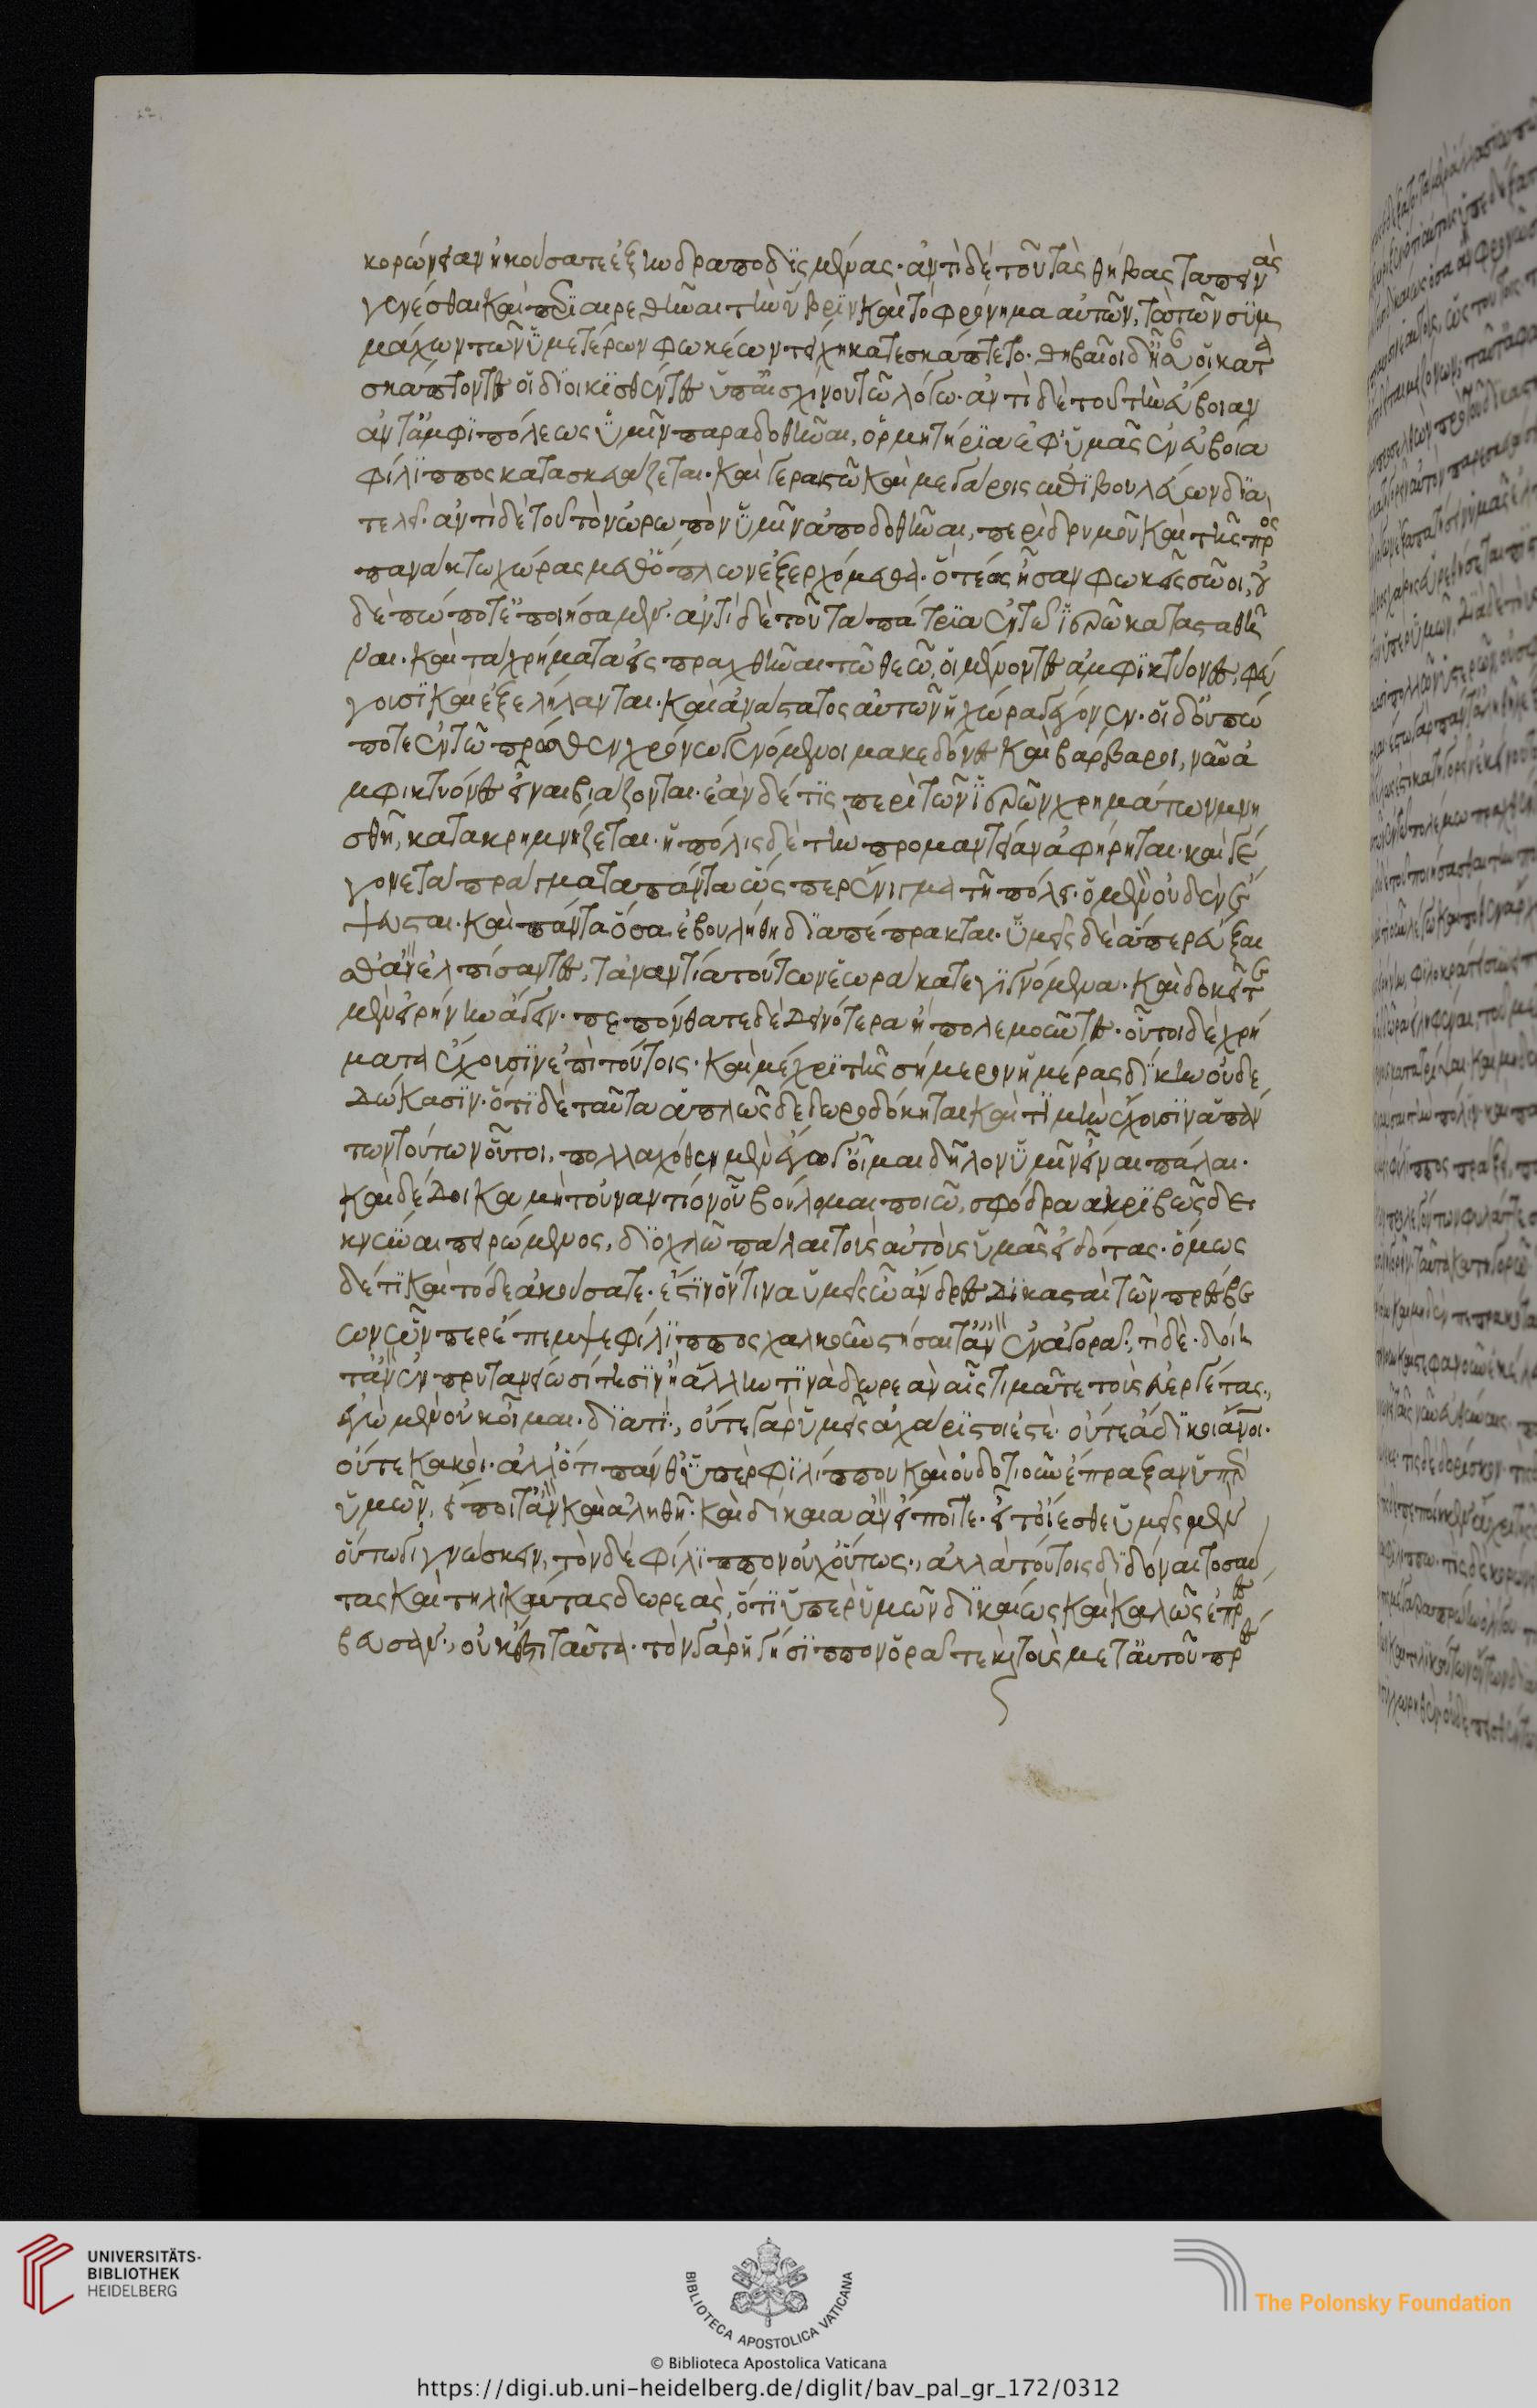 κορώνειαν ἠκούσατε ἐξηνδραποδισμένας· ἀντὶ δὲ τοῦ τὰς θήβας ταπεινὰς
γενέσθαι καὶ περιαιρεθῆναι τὴν ὕβριν καὶ τὸ φρόνημα αὐτῶν, τὰ τῶν συμ
μάχων τῶν ὑμετέρων φωκέων τείχη κατεσκάπτετο· θηβαῖοι δ' ἦσαν οἱ κατα
σκάπτοντες οἱ διοικισθέντες ὑπ' αἰσχίνου τῶ λόγω· ἀντὶ δὲ τοῦ τὴν εὔβοιαν
ἀντ' ἀμφιπόλεως ὑμῖν παραδοθῆναι, ὁρμητήρια ἐφ' ὑμᾶς ἐν εὐβοία
φίλιππος κατασκευάζεται· καὶ γεραιστῶ καὶ μεγάροις ἐπιβουλεύων δια
τελεῖ· ἀντὶ δὲ τοῦ τὸν ὠρωπὸν ὑμῖν ἀποδοθῆναι, περὶ δρυμοῦ καὶ τῆς πρὸς
πανάκτω χώρας μεθ' ὅπλων ἐξερχόμεθα· ὅτε ἕως ἦσαν φωκεῖς σῶοι, οὐ
δὲ πώποτε ἐποιήσαμεν· ἀντὶ δὲ τοῦ τὰ πάτρια ἐν τῶ ἱερῶ κατασταθῆ
ναι· καὶ τὰ χρήματα εἰσπραχθῆναι τῶ θεῶ, οἱ μὲν ὄντες ἀμφικτύονες, φεύ
γουσι καὶ ἐξελήλανται· καὶ ἀνάστατος αὐτῶν ἡ χώρα γέγονεν· οἱ δ' οὐπώ
ποτε ἐν τῶ πρόσθεν χρόνω γενόμενοι μακεδόνες καὶ βάρβαροι, νῦν ἀ
μφικτυόνες εἶναι βιάζονται· ἐὰν δέ τις περὶ τῶν ἱερῶν χρημάτων μνη
σθῆ, κατακρημνίζεται· ἡ πόλις δὲ τὴν προμαντείαν ἀφήρηται· καὶ γέ
γονε τὰ πράγματα πάντα ὥσπερ αἴνιγμα τῆ πόλει· ὁ μὲν οὐδὲν ἔ
ψευσται· καὶ πάντα ὅσα ἐβουλήθη διαπέπρακται· ὑμεῖς δὲ ἅπερ εὔξαι
σθ' ἂν ἐλπίσαντες, τἀναντία τούτων ἑωράκατε γιγνόμενα· καὶ δοκεῖτε
μὲν εἰρήνην ἄγειν· πεπόνθατε δὲ δεινότερα ἢ πολεμοῦντες· οὗτοι δὲ χρή
ματα ἔχουσιν ἐπὶ τούτοις· καὶ μέχρι τῆς σήμερον ἡμέρας δίκην οὐ δε
δώκασιν· ὅτι δὲ ταῦτα ἁπλῶς δεδωροδόκηται καὶ τιμὴν ἔχουσιν ἁπάν
των τούτων οὗτοι, πολλαχόθεν μὲν ἔγωγ' οἶμαι δῆλον ὑμῖν εἶναι πάλαι·
καὶ δέδοικα μὴ τοὐναντίον οὗ βούλομαι ποιῶ, σφόδρα ἀκριβῶς δει
κνύναι πειρώμενος, διοχλῶ πάλαι τοῦτ' αὐτοὺς ὑμᾶς εἰδότας· ὅμως
δέ τι καὶ τόδε ἀκούσατε· ἔστιν ὅντινα ὑμεῖς ὦ ἄνδρες δικασταὶ τῶν πρέσβε
ων ὧν περ ἔπεμψε φίλιππος χαλκοῦν στήσαιτ' ἂν ἐν ἀγορᾶ; τί δὲ· δοίη
τ' ἂν ἐν πρυτανείω σίτησιν ἢ ἄλλην τινὰ δωρεὰν αἷς τιμᾶτε τοὺς εὐεργέτας·,
ἐγὼ μὲν οὐκ οἶμαι· διατί·, οὔτε γὰρ ὑμεῖς ἀχάριστοί ἐστε· οὔτε ἄδικοι ἄνοι·
οὔτε κακοί· ἀλλ' ὅτι πάνθ' ὑπὲρ φιλίππου καὶ οὐδοτιοῦν ἔπραξαν ὑπὲρ
ὑμῶν, εἴποιτ' ἂν καὶ ἀληθῆ· καὶ δίκαια ἂν εἴποιτε· εἶτ' οἴεσθε ὑμεῖς μὲν
οὕτω γιγνώσκειν, τὸν δὲ φίλιππον οὐχ οὕτως·, ἀλλὰ τούτοις διδόναι τοσαύ
τας καὶ τηλικαύτας δωρεὰς, ὅτι ὑπὲρ ὑμῶν δικαίως καὶ καλῶς ἐπρέσ
βευσαν·, οὐκ ἔστι ταῦτα· τὸν γὰρ ἡγήσιππον ὁρᾶτε καὶ τοὺς μετ' αὐτοῦ πρέσ
UNIVERSITÄTS-
BIBLIOTHEK
HEIDELBERG
BIBLIOTECA APOSTOLICA VATICANA
The Polonsky Foundation
© Biblioteca Apostolica Vaticana
https://digi.ub.uni-heidelberg.de/diglit/bav_pal_gr_172/0312